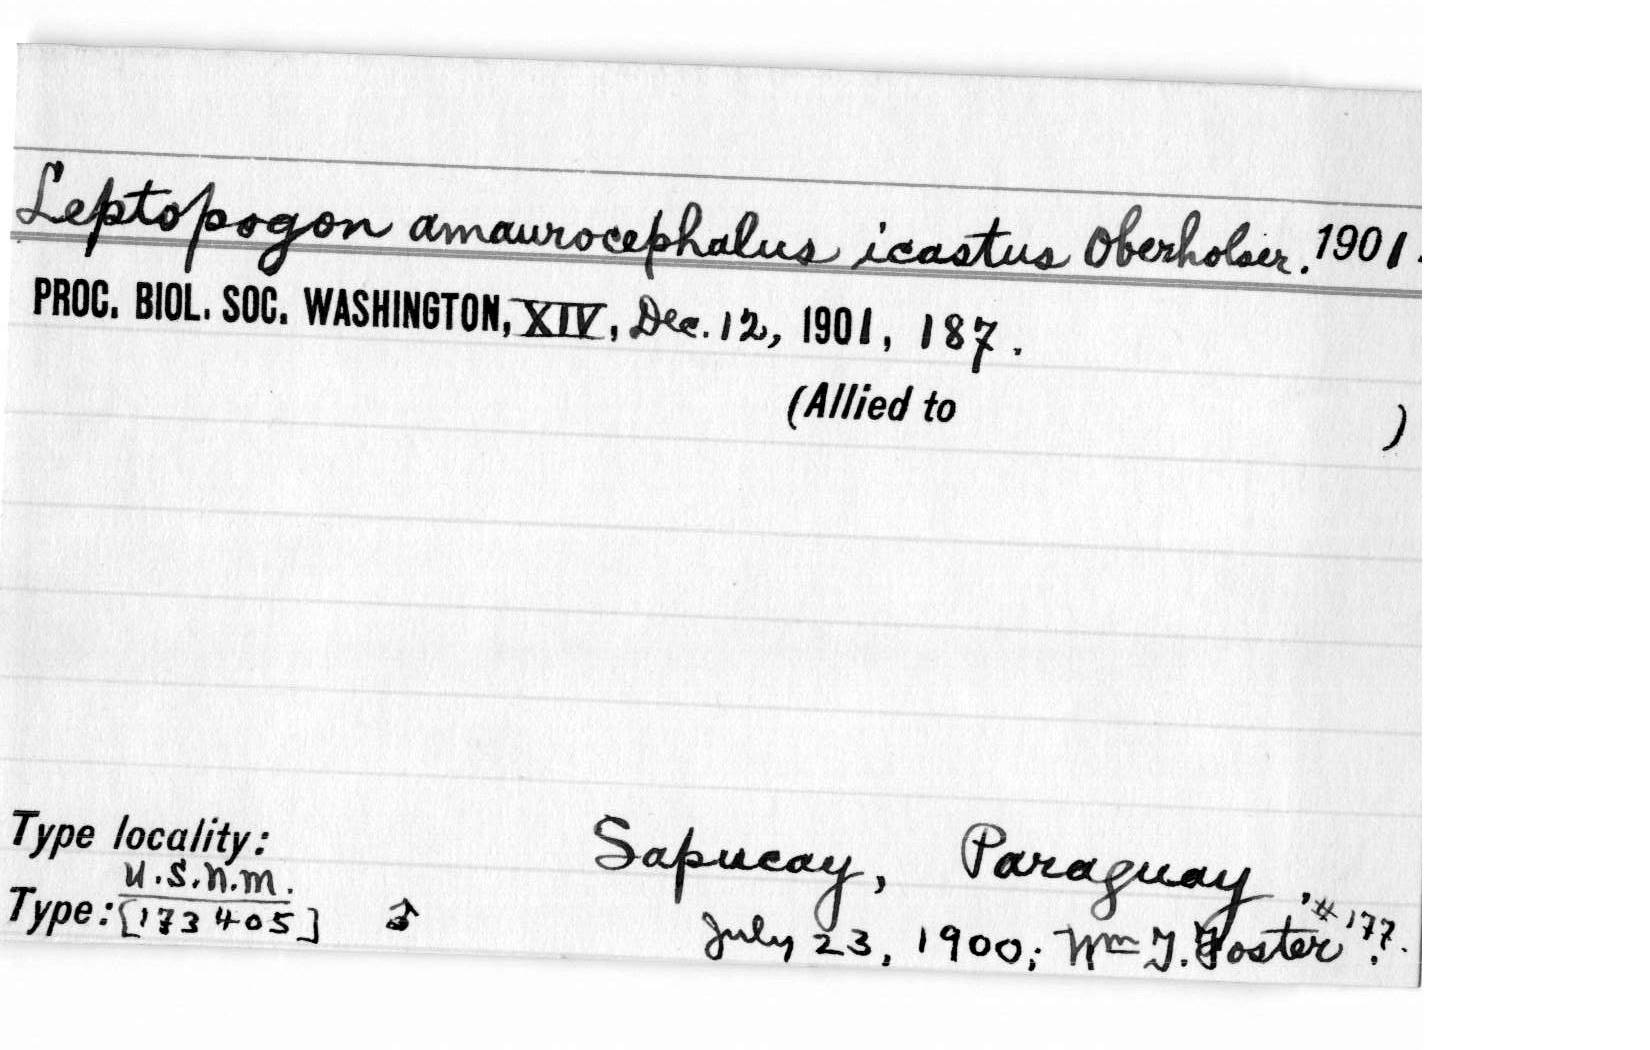 Leptopogon amaurocephalus icastus Oberholser. 1901.
PROC. BIOL. SOC. WASHINGTON, XIV, Dec. 12, 1901, 187.
(Allied to )
Type locality: Sapucay, Paraguay,
U.S.N.M.
Type: [173405] ♂ July 23, 1900; Wm T. Foster. #177.